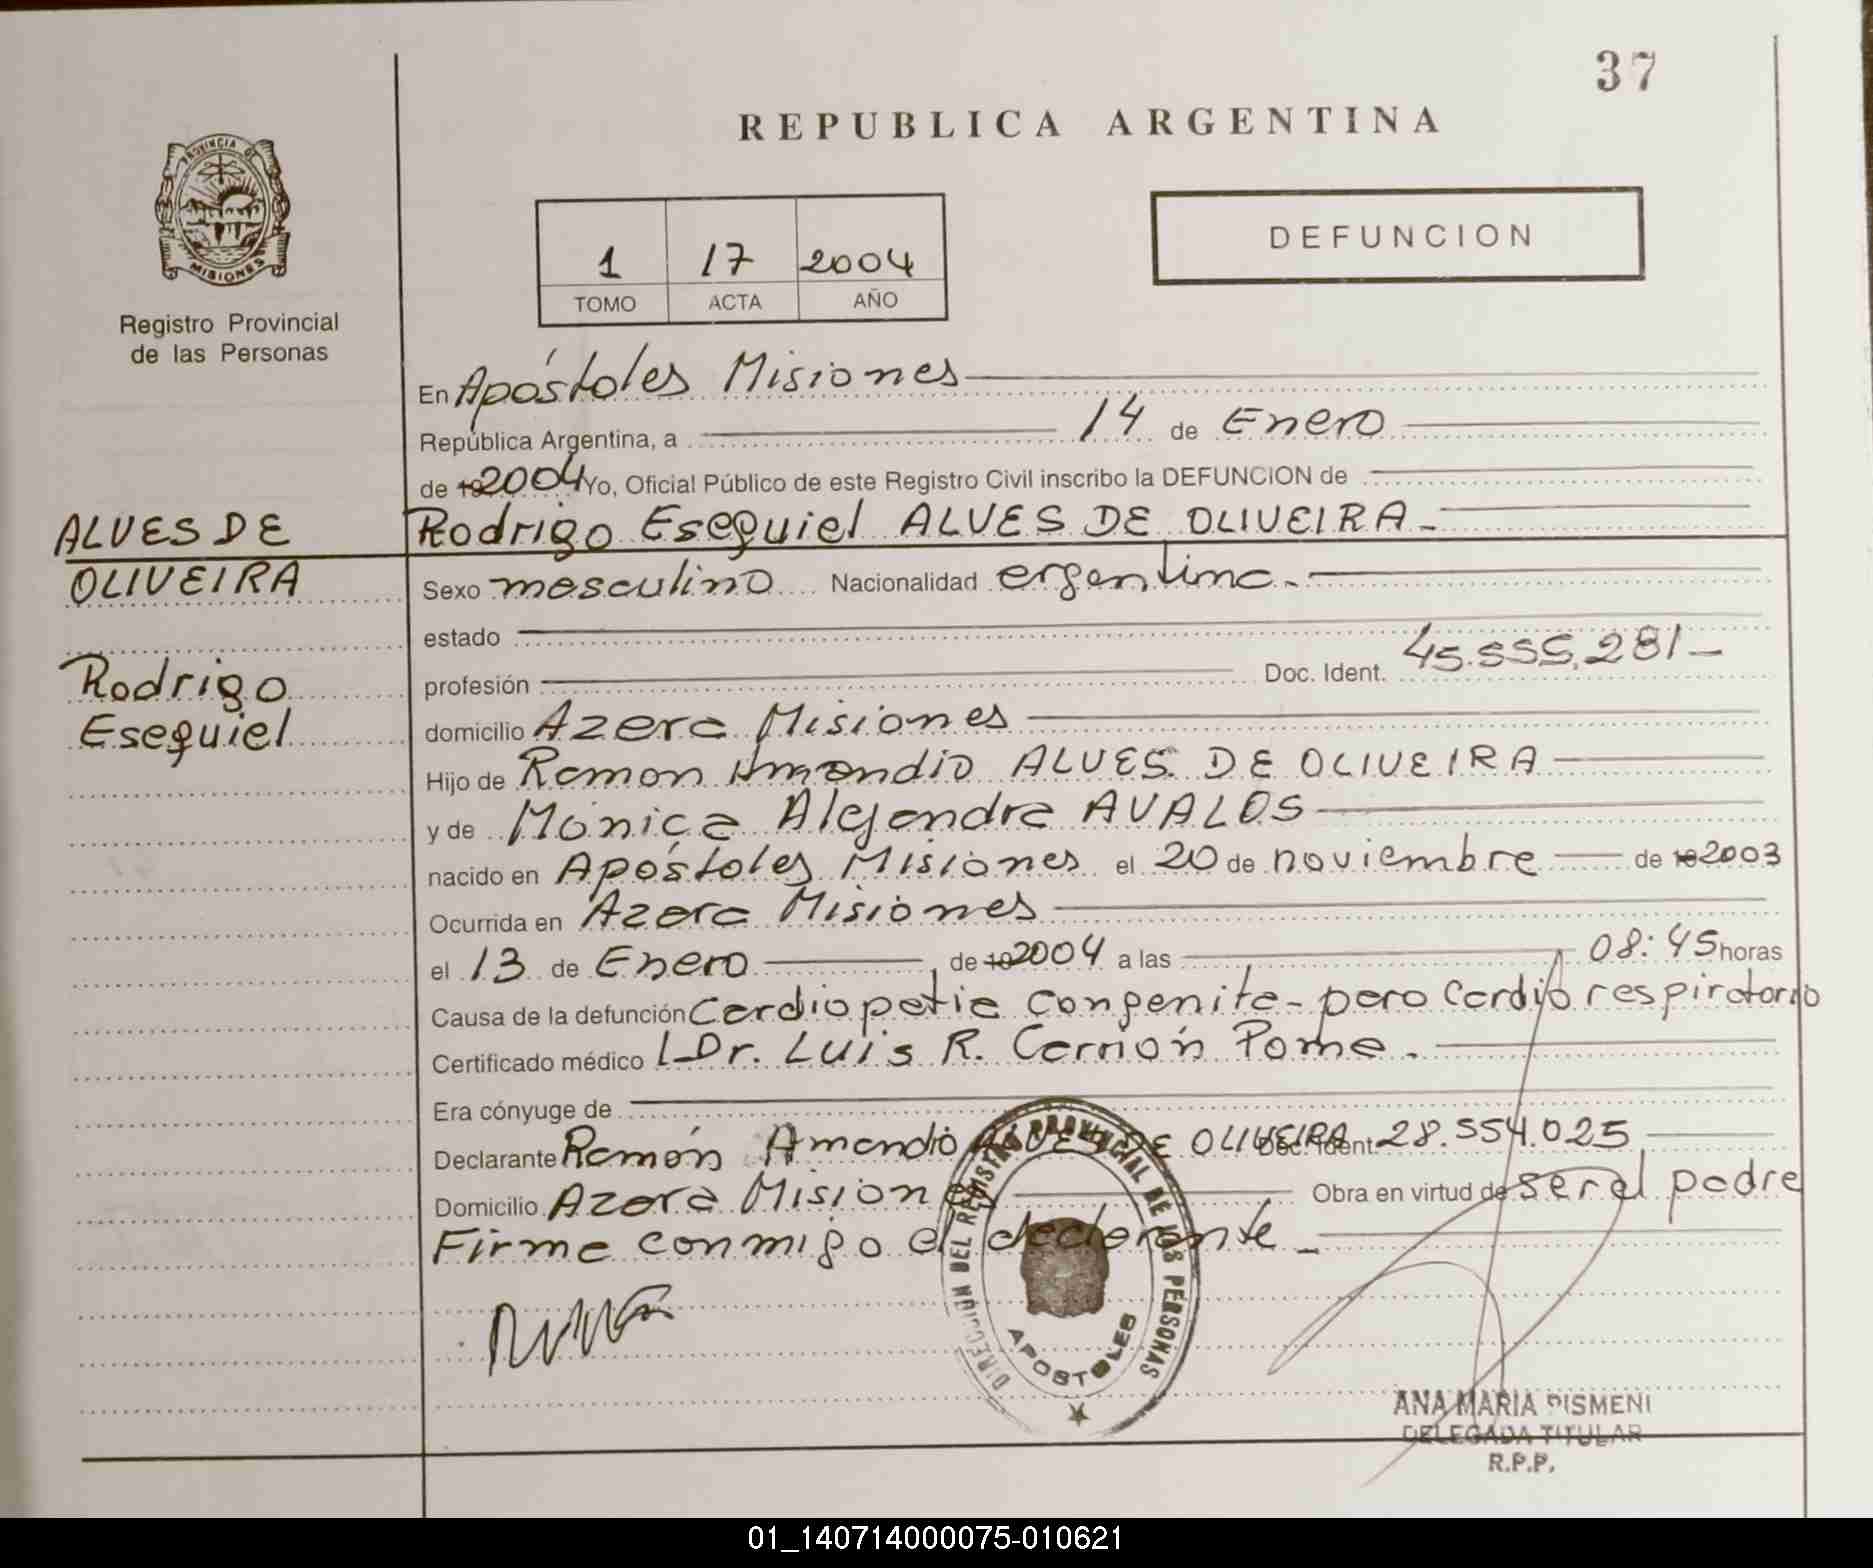 37
REPUBLICA ARGENTINA
PROVINCIA DE
MISIONES
Registro Provincial
de las Personas
1 17 2004
TOMO ACTA AÑO
DEFUNCION
En Apóstoles Misiones
República Argentina, a 14 de Enero
de 19 2004 Yo, Oficial Público de este Registro Civil inscribo la DEFUNCION de
Rodrigo Esequiel ALVES DE OLIVEIRA.-
ALVES DE
OLIVEIRA
Rodrigo
Esequiel
Sexo masculino Nacionalidad argentina.-
estado
profesión Doc. Ident. 45.555.281-
domicilio Azara Misiones
Hijo de Ramon Amandio ALVES DE OLIVEIRA
y de Mónica Alejandra AVALOS
nacido en Apóstoles Misiones el 20 de noviembre de 19 2003
Ocurrida en Azara Misiones
el 13 de Enero de 19 2004 a las 08:45 horas
Causa de la defunción Cardiopatia congenita-paro Cardio respiratorio
Certificado médico Dr. Luis R. Carrión Pome.
Era cónyuge de
Declarante Ramón Amandio ALVES DE OLIVEIRA Doc. Ident. 28.554.025
Domicilio Azara Misiones Obra en virtud de ser el padre
Firma conmigo el declarante -
DIRECCIÓN DEL REGISTRO PROVINCIAL DE LAS PERSONAS
APOSTOLES
ANA MARIA PISMENI
DELEGADA TITULAR
R.P.P.
01_140714000075-010621